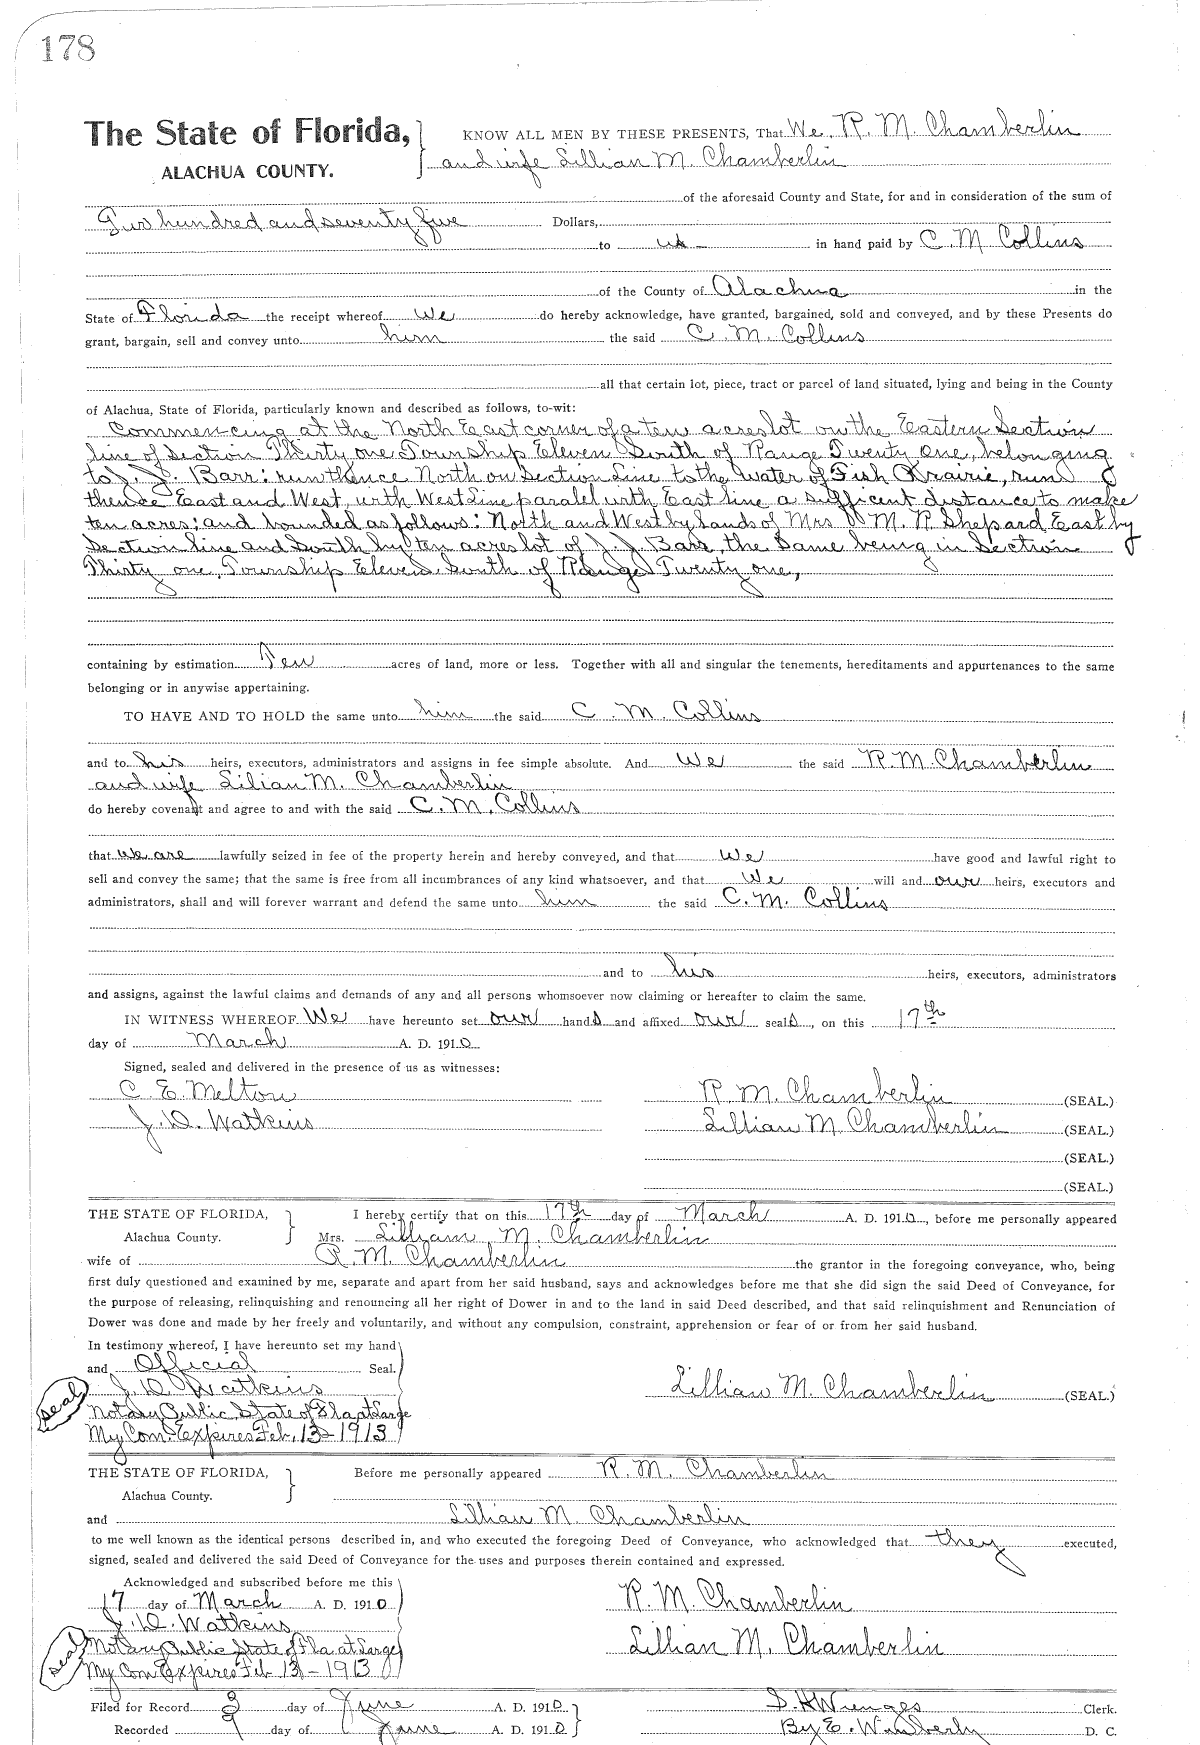 178
The State of Florida, KNOW ALL MEN BY THESE PRESENTS, That We, R. M. Chamberlin
ALACHUA COUNTY. and wife Lillian M. Chamberlin
of the aforesaid County and State, for and in consideration of the sum of
Two hundred and seventy five Dollars,
to us in hand paid by C. M. Collins
of the County of Alachua in the
State of Florida the receipt whereof We do hereby acknowledge, have granted, bargained, sold and conveyed, and by these Presents do
grant, bargain, sell and convey unto him the said C. M. Collins
all that certain lot, piece, tract or parcel of land situated, lying and being in the County
of Alachua, State of Florida, particularly known and described as follows, to-wit:
Commencing at the North East corner of a ten acres lot on the Eastern Section
line of Section Thirty one, Township Eleven South of Range Twenty one, belonging
to J. J. Barr: run thence North on Section Line to the water of Fish Prairie, run
thence East and West, with West Line paralel with East line a sufficent distance to make
ten acres; and bounded as follows: North and West by lands of Mrs M. R. Shepard East by
Section line and South by ten acres lot of J. J. Barr, the Same being in Section
Thirty one, Township Eleven South of Range Twenty one,
containing by estimation Ten acres of land, more or less. Together with all and singular the tenements, hereditaments and appurtenances to the same
belonging or in anywise appertaining.
TO HAVE AND TO HOLD the same unto him the said C. M. Collins
and to his heirs, executors, administrators and assigns in fee simple absolute. And We the said R. M. Chamberlin
and wife Lilian M. Chamberlin
do hereby covenant and agree to and with the said C. M. Collins
that we are lawfully seized in fee of the property herein and hereby conveyed, and that We have good and lawful right to
sell and convey the same; that the same is free from all incumbrances of any kind whatsoever, and that We will and our heirs, executors and
administrators, shall and will forever warrant and defend the same unto him the said C. M. Collins
and to his heirs, executors, administrators
and assigns, against the lawful claims and demands of any and all persons whomsoever now claiming or hereafter to claim the same.
IN WITNESS WHEREOF We have hereunto set our hands and affixed our seals, on this 17th
day of March A. D. 1910
Signed, sealed and delivered in the presence of us as witnesses:
C. E. Melton R. M. Chamberlin (SEAL.)
J. D. Watkins Lillian M. Chamberlin (SEAL.)
(SEAL.)
(SEAL.)
THE STATE OF FLORIDA, I hereby certify that on this 17th day of March A. D. 1910, before me personally appeared
Alachua County. Mrs. Lilliam M. Chamberlin
wife of R. M. Chamberlin the grantor in the foregoing conveyance, who, being
first duly questioned and examined by me, separate and apart from her said husband, says and acknowledges before me that she did sign the said Deed of Conveyance, for
the purpose of releasing, relinquishing and renouncing all her right of Dower in and to the land in said Deed described, and that said relinquishment and Renunciation of
Dower was done and made by her freely and voluntarily, and without any compulsion, constraint, apprehension or fear of or from her said husband.
In testimony whereof, I have hereunto set my hand
and Official Seal.
J. D. Watkins Lillian M. Chamberlin (SEAL.)
seal Notary Public State of Fla at Large
My Com. Expires Feb, 13-1913
THE STATE OF FLORIDA, Before me personally appeared R. M. Chamberlin
Alachua County.
and Lillian M. Chamberlin
to me well known as the identical persons described in, and who executed the foregoing Deed of Conveyance, who acknowledged that they executed,
signed, sealed and delivered the said Deed of Conveyance for the uses and purposes therein contained and expressed.
Acknowledged and subscribed before me this
17 day of March A. D. 1910 R. M. Chamberlin
J. D. Watkins
seal Notary Public State of Fla. at Large Lillian M. Chamberlin
My Com Expires Feb 13-1913
Filed for Record 3 day of June A. D. 1910 S. H. Wienges Clerk.
Recorded 9 day of June A. D. 1910. By E. Wimberly D. C.